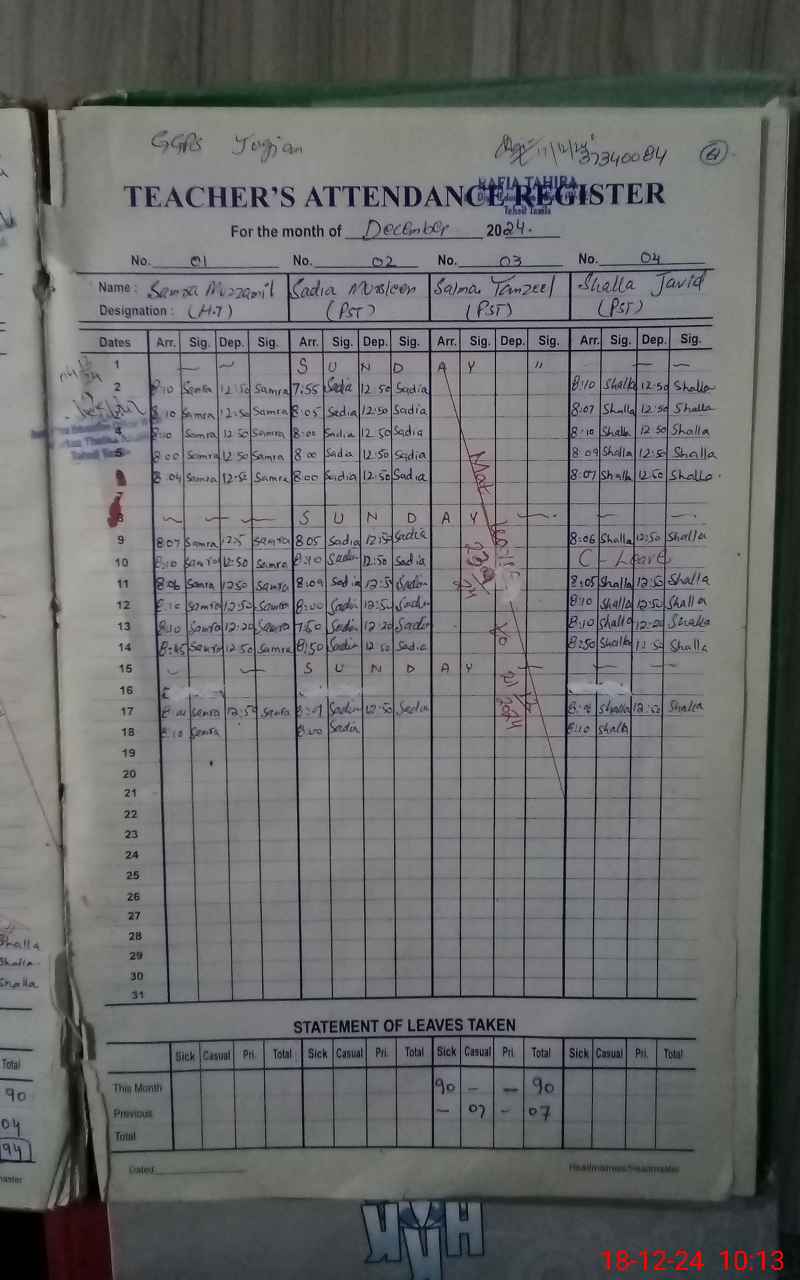 GGPS Jogian
17/12/24 37340084
TEACHER'S ATTENDANCE REGISTER
RAFIA TAHIRA
Tehsil Taxila
For the month of December 2024.
No. 01 No. 02 No. 03 No. 04
Name : Samra Muzzamil Sadia Salma Tanzeel Shalla Javid
Designation : (H.T) (PST) (PST) (PST)
Dates Arr. Sig. Dep. Sig. Arr. Sig. Dep. Sig. Arr. Sig. Dep. Sig. Arr. Sig. Dep. Sig.
1 S U N D A Y "
2 8:10 Samra 12:50 Samra 7:55 Sadia 12:50 Sadia 8:10 Shalla 12:50 Shalla
8:10 Samra 12:50 Samra 8:05 Sadia 12:50 Sadia 8:07 Shalla 12:50 Shalla
4 8:10 Samra 12:50 Samra 8:00 Sadia 12:50 Sadia 8:10 Shalla 12:50 Shalla
5 8:00 Samra 12:50 Samra 8:00 Sadia 12:50 Sadia 8:09 Shalla 12:50 Shalla
8:04 Samra 12:50 Samra 8:00 Sadia 12:50 Sadia 8:07 Shalla 12:50 Shalla
7
8 S U N D A Y
9 8:07 Samra 12:5 Samra 8:05 Sadia 12:50 Sadia 8:06 Shalla 12:50 Shalla
10 8:10 Samra 12:50 Samra 8:10 Sadia 12:50 Sadia C-Leave
11 8:06 Samra 12:50 Samra 8:09 Sadia 12:50 Sadia 8:05 Shalla 12:50 Shalla
12 8:10 Samra 12:50 Samra 8:00 Sadia 12:50 Sadia 8:10 Shalla 12:50 Shalla
13 8:10 Samra 12:20 Samra 7:50 Sadia 12:20 Sadia 8:10 Shalla 12:20 Shalla
14 8:45 Samra 12:50 Samra 8:50 Sadia 12:50 Sadia 8:50 Shalla 12:50 Shalla
15 S U N D A Y
16
17 Samra 12:50 Samra Sadia 12:50 Sadia Shalla 12:50 Shalla
18 8:10 Samra 8:00 Sadia 8:10 Shalla
19
20
21
22
23
24
25
26
27
28
29
30
31
Mat to 2024
STATEMENT OF LEAVES TAKEN
Sick Casual Pri. Total Sick Casual Pri. Total Sick Casual Pri. Total Sick Casual Pri. Total
This Month 90 - - 90
Previous - 07 - 07
Total
Dated Headmistress/Headmaster
Shalla
Shalla
Shalla
Total
90
04
94
18-12-24 10:13